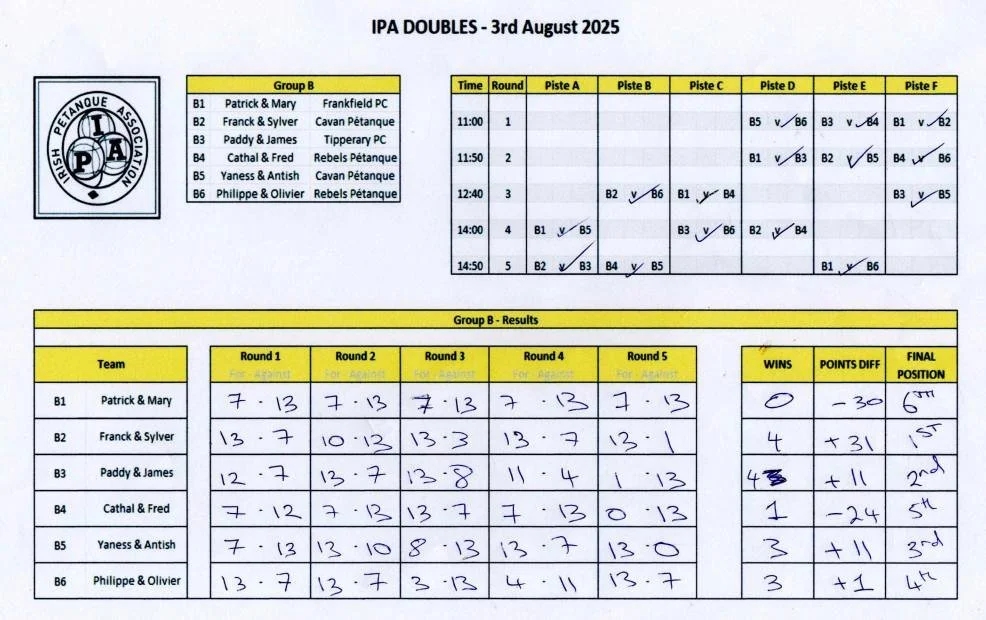 IPA DOUBLES - 3rd August 2025
IRISH PETANQUE ASSOCIATION
I
P A
Group B
B1 Patrick & Mary Frankfield PC
B2 Franck & Sylver Cavan Pétanque
B3 Paddy & James Tipperary PC
B4 Cathal & Fred Rebels Pétanque
B5 Yaness & Antish Cavan Pétanque
B6 Philippe & Olivier Rebels Pétanque
Time Round Piste A Piste B Piste C Piste D Piste E Piste F
11:00 1 B5 v B6 B3 v B4 B1 v B2
11:50 2 B1 v B3 B2 v B5 B4 v B6
12:40 3 B2 v B6 B1 v B4 B3 v B5
14:00 4 B1 v B5 B3 v B6 B2 v B4
14:50 5 B2 v B3 B4 v B5 B1 v B6
Group B - Results
Team Round 1 Round 2 Round 3 Round 4 Round 5 WINS POINTS DIFF FINAL POSITION
For - Against For - Against For - Against For - Against For - Against
B1 Patrick & Mary 7 - 13 7 - 13 7 - 13 7 - 13 7 - 13 0 - 30 6TH
B2 Franck & Sylver 13 - 7 10 - 13 13 - 3 13 - 7 13 - 1 4 + 31 1ST
B3 Paddy & James 12 - 7 13 - 7 13 - 8 11 - 4 1 - 13 4 + 11 2nd
B4 Cathal & Fred 7 - 12 7 - 13 13 - 7 7 - 13 0 - 13 1 - 24 5th
B5 Yaness & Antish 7 - 13 13 - 10 8 - 13 13 - 7 13 - 0 3 + 11 3rd
B6 Philippe & Olivier 13 - 7 13 - 7 3 - 13 4 - 11 13 - 7 3 + 1 4th